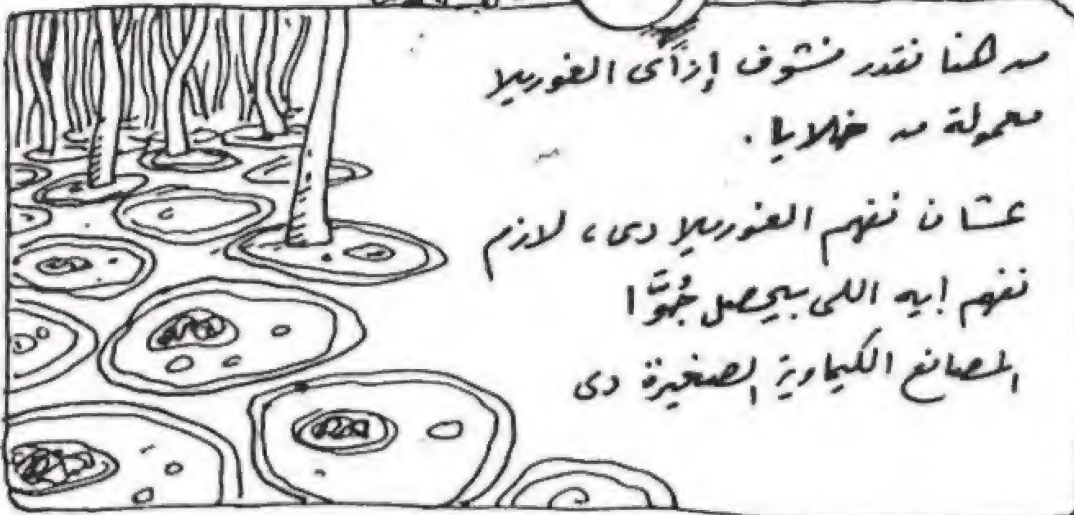 من هنا نقدر نشوف إزاى الغوريلا
معمولة من خلايا.
عشان نفهم الغوريلا دى، لازم
نفهم ايه اللى بيحصل جُوَّا
المصانع الكيماوية الصغيرة دى